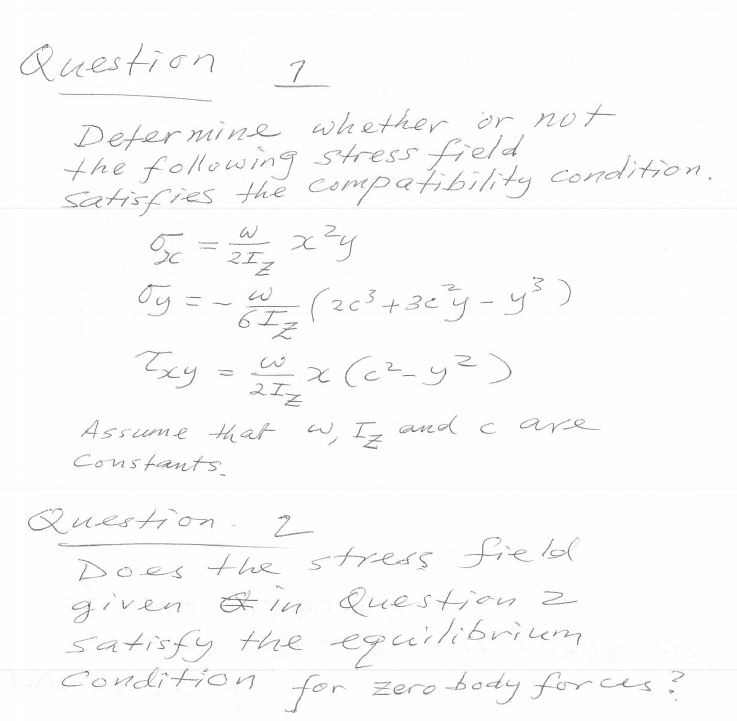 Question 1
Determine whether or not
the following stress field
satisfies the compatibility condition.
σx = ω/2Iz x²y
σy = - ω/6Iz (2c³ + 3c²y - y³)
τxy = ω/2Iz x (c² - y²)
Assume that ω, Iz and c are
constants.
Question. 2
Does the stress field
given in Question 2
satisfy the equilibrium
condition for zero body forces?